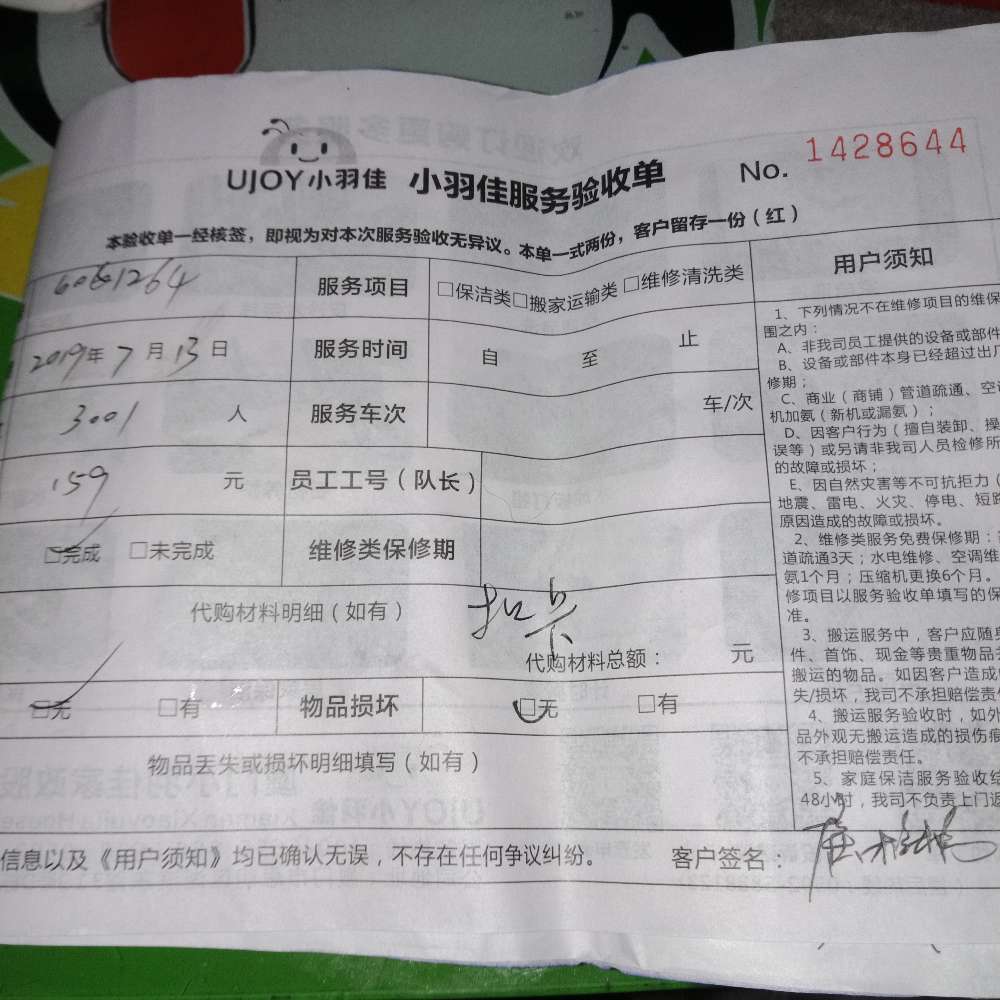 UJOY小羽佳 小羽佳服务验收单 No. 1428644
本验收单一经核签，即视为对本次服务验收无异议。本单一式两份，客户留存一份（红）
服务项目 □保洁类□搬家运输类 □维修清洗类
2019年7月13日 服务时间 自 至 止
3001 人 服务车次 车/次
159 元 员工工号（队长）
□完成 □未完成 维修类保修期
代购材料明细（如有） 扣卡
代购材料总额： 元
□无 □有 物品损坏 □无 □有
物品丢失或损坏明细填写（如有）
信息以及《用户须知》均已确认无误，不存在任何争议纠纷。 客户签名：
用户须知
1、下列情况不在维修项目的维保
围之内：
A、非我司员工提供的设备或部件
B、设备或部件本身已经超过出厂
修期；
C、商业（商铺）管道疏通、空
机加氨（新机或漏氨）；
D、因客户行为（擅自装卸、操
误等）或另请非我司人员检修所
的故障或损坏；
E、因自然灾害等不可抗拒力（
地震、雷电、火灾、停电、短路
原因造成的故障或损坏。
2、维修类服务免费保修期：
道疏通3天；水电维修、空调维
氨1个月；压缩机更换6个月。
修项目以服务验收单填写的保
准。
3、搬运服务中，客户应随身
件、首饰、现金等贵重物品
搬运的物品。如因客户造成
失/损坏，我司不承担赔偿责
4、搬运服务验收时，如外
品外观无搬运造成的损伤痕
不承担赔偿责任。
5、家庭保洁服务验收结
48小时，我司不负责上门返